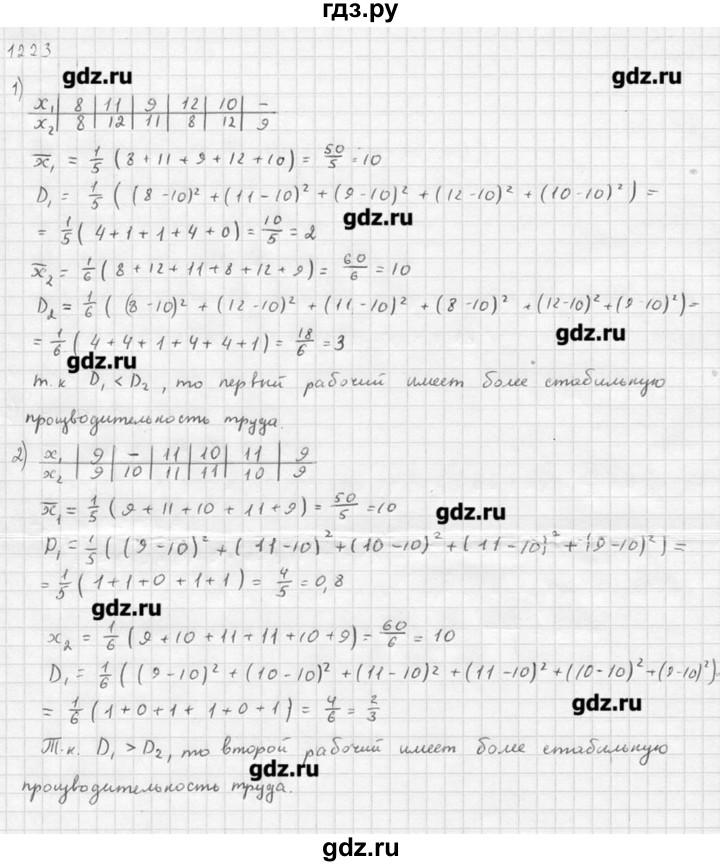 гдз.ру
1223
gdz.ru gdz.ru
1)
x₁ | 8 | 11 | 9 | 12 | 10 | -
x₂ | 8 | 12 | 11 | 8 | 12 | 9
x̄₁ = 1/5 (8+11+9+12+10) = 50/5 = 10
D₁ = 1/5 ((8-10)² + (11-10)² + (9-10)² + (12-10)² + (10-10)²) =
gdz.ru
= 1/5 (4+1+1+4+0) = 10/5 = 2
x̄₂ = 1/6 (8+12+11+8+12+9) = 60/6 = 10
D₂ = 1/6 ((8-10)² + (12-10)² + (11-10)² + (8-10)² + (12-10)² + (9-10)²) =
gdz.ru
= 1/6 (4+4+1+4+4+1) = 18/6 = 3
gdz.ru
т.к D₁ < D₂, то первый рабочий имеет более стабильную
производительность труда.
2)
x₁ | 9 | - | 11 | 10 | 11 | 9
x₂ | 9 | 10 | 11 | 11 | 10 | 9
x̄₁ = 1/5 (9+11+10+11+9) = 50/5 = 10
gdz.ru
D₁ = 1/5 ((9-10)² + (11-10)² + (10-10)² + (11-10)² + (9-10)²) =
= 1/5 (1+1+0+1+1) = 4/5 = 0,8
gdz.ru
x₂ = 1/6 (9+10+11+11+10+9) = 60/6 = 10
D₁ = 1/6 ((9-10)² + (10-10)² + (11-10)2 + (11-10)² + (10-10)² + (9-10)²)
gdz.ru
= 1/6 (1+0+1+1+0+1) = 4/6 = 2/3
Т.к. D₁ > D₂, то второй рабочий имеет более стабильную
gdz.ru
производительность труда.
gdz.ru